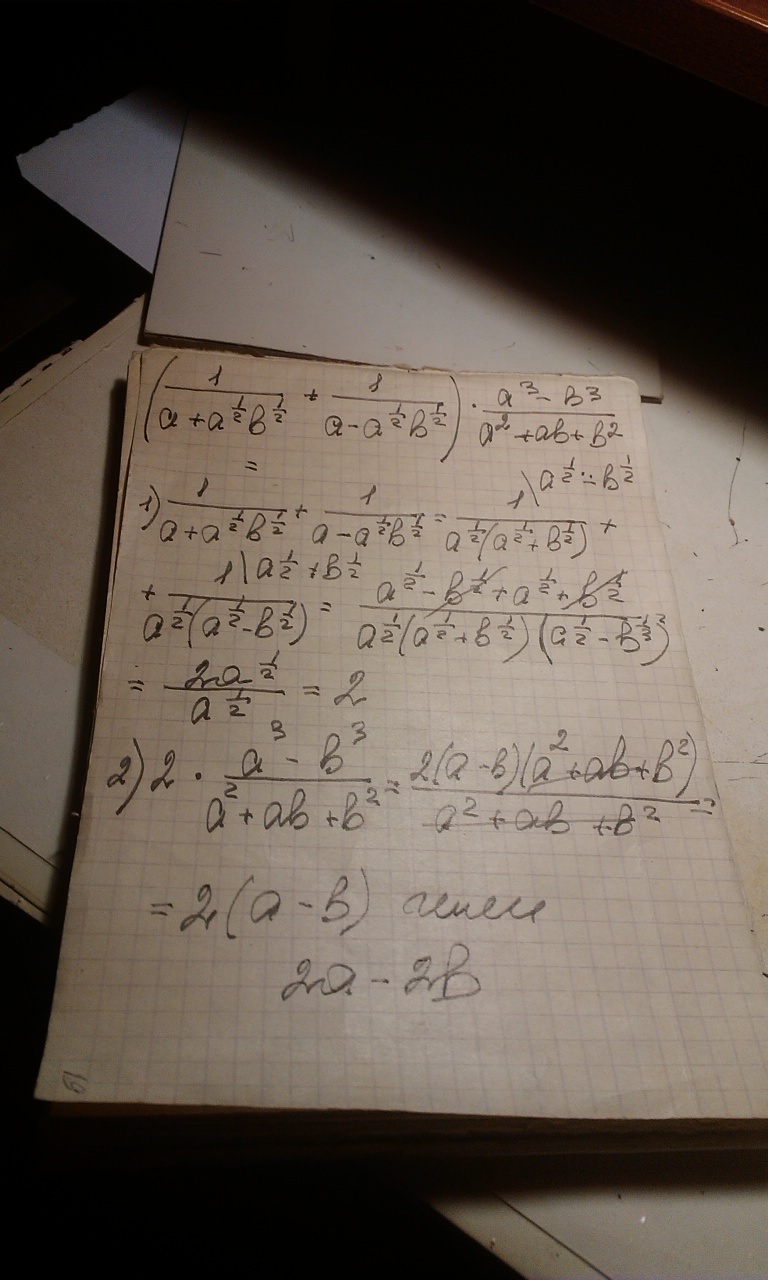 (1/(a + a^(1/2)b^(1/2)) + 1/(a - a^(1/2)b^(1/2))) · (a³ - b³)/(a² + ab + b²)
=
1) 1/(a + a^(1/2)b^(1/2)) + 1/(a - a^(1/2)b^(1/2)) = 1\a^(1/2) - b^(1/2)/(a^(1/2)(a^(1/2) + b^(1/2))) +
+ 1\a^(1/2) + b^(1/2)/(a^(1/2)(a^(1/2) - b^(1/2))) = (a^(1/2) - b^(1/2) + a^(1/2) + b^(1/2))/(a^(1/2)(a^(1/2) + b^(1/2))(a^(1/2) - b^(1/2))) =
= 2a^(1/2)/a^(1/2) = 2
2) 2 · (a³ - b³)/(a² + ab + b²) = 2(a - b)(a² + ab + b²)/(a² + ab + b²) =
= 2(a - b)
2a - 2b